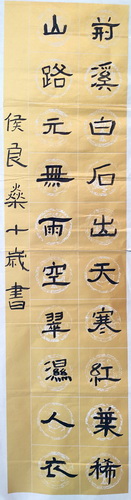 荊溪白石出天寒紅葉稀
山路元無雨空翠濕人衣
侯良燊十歲書